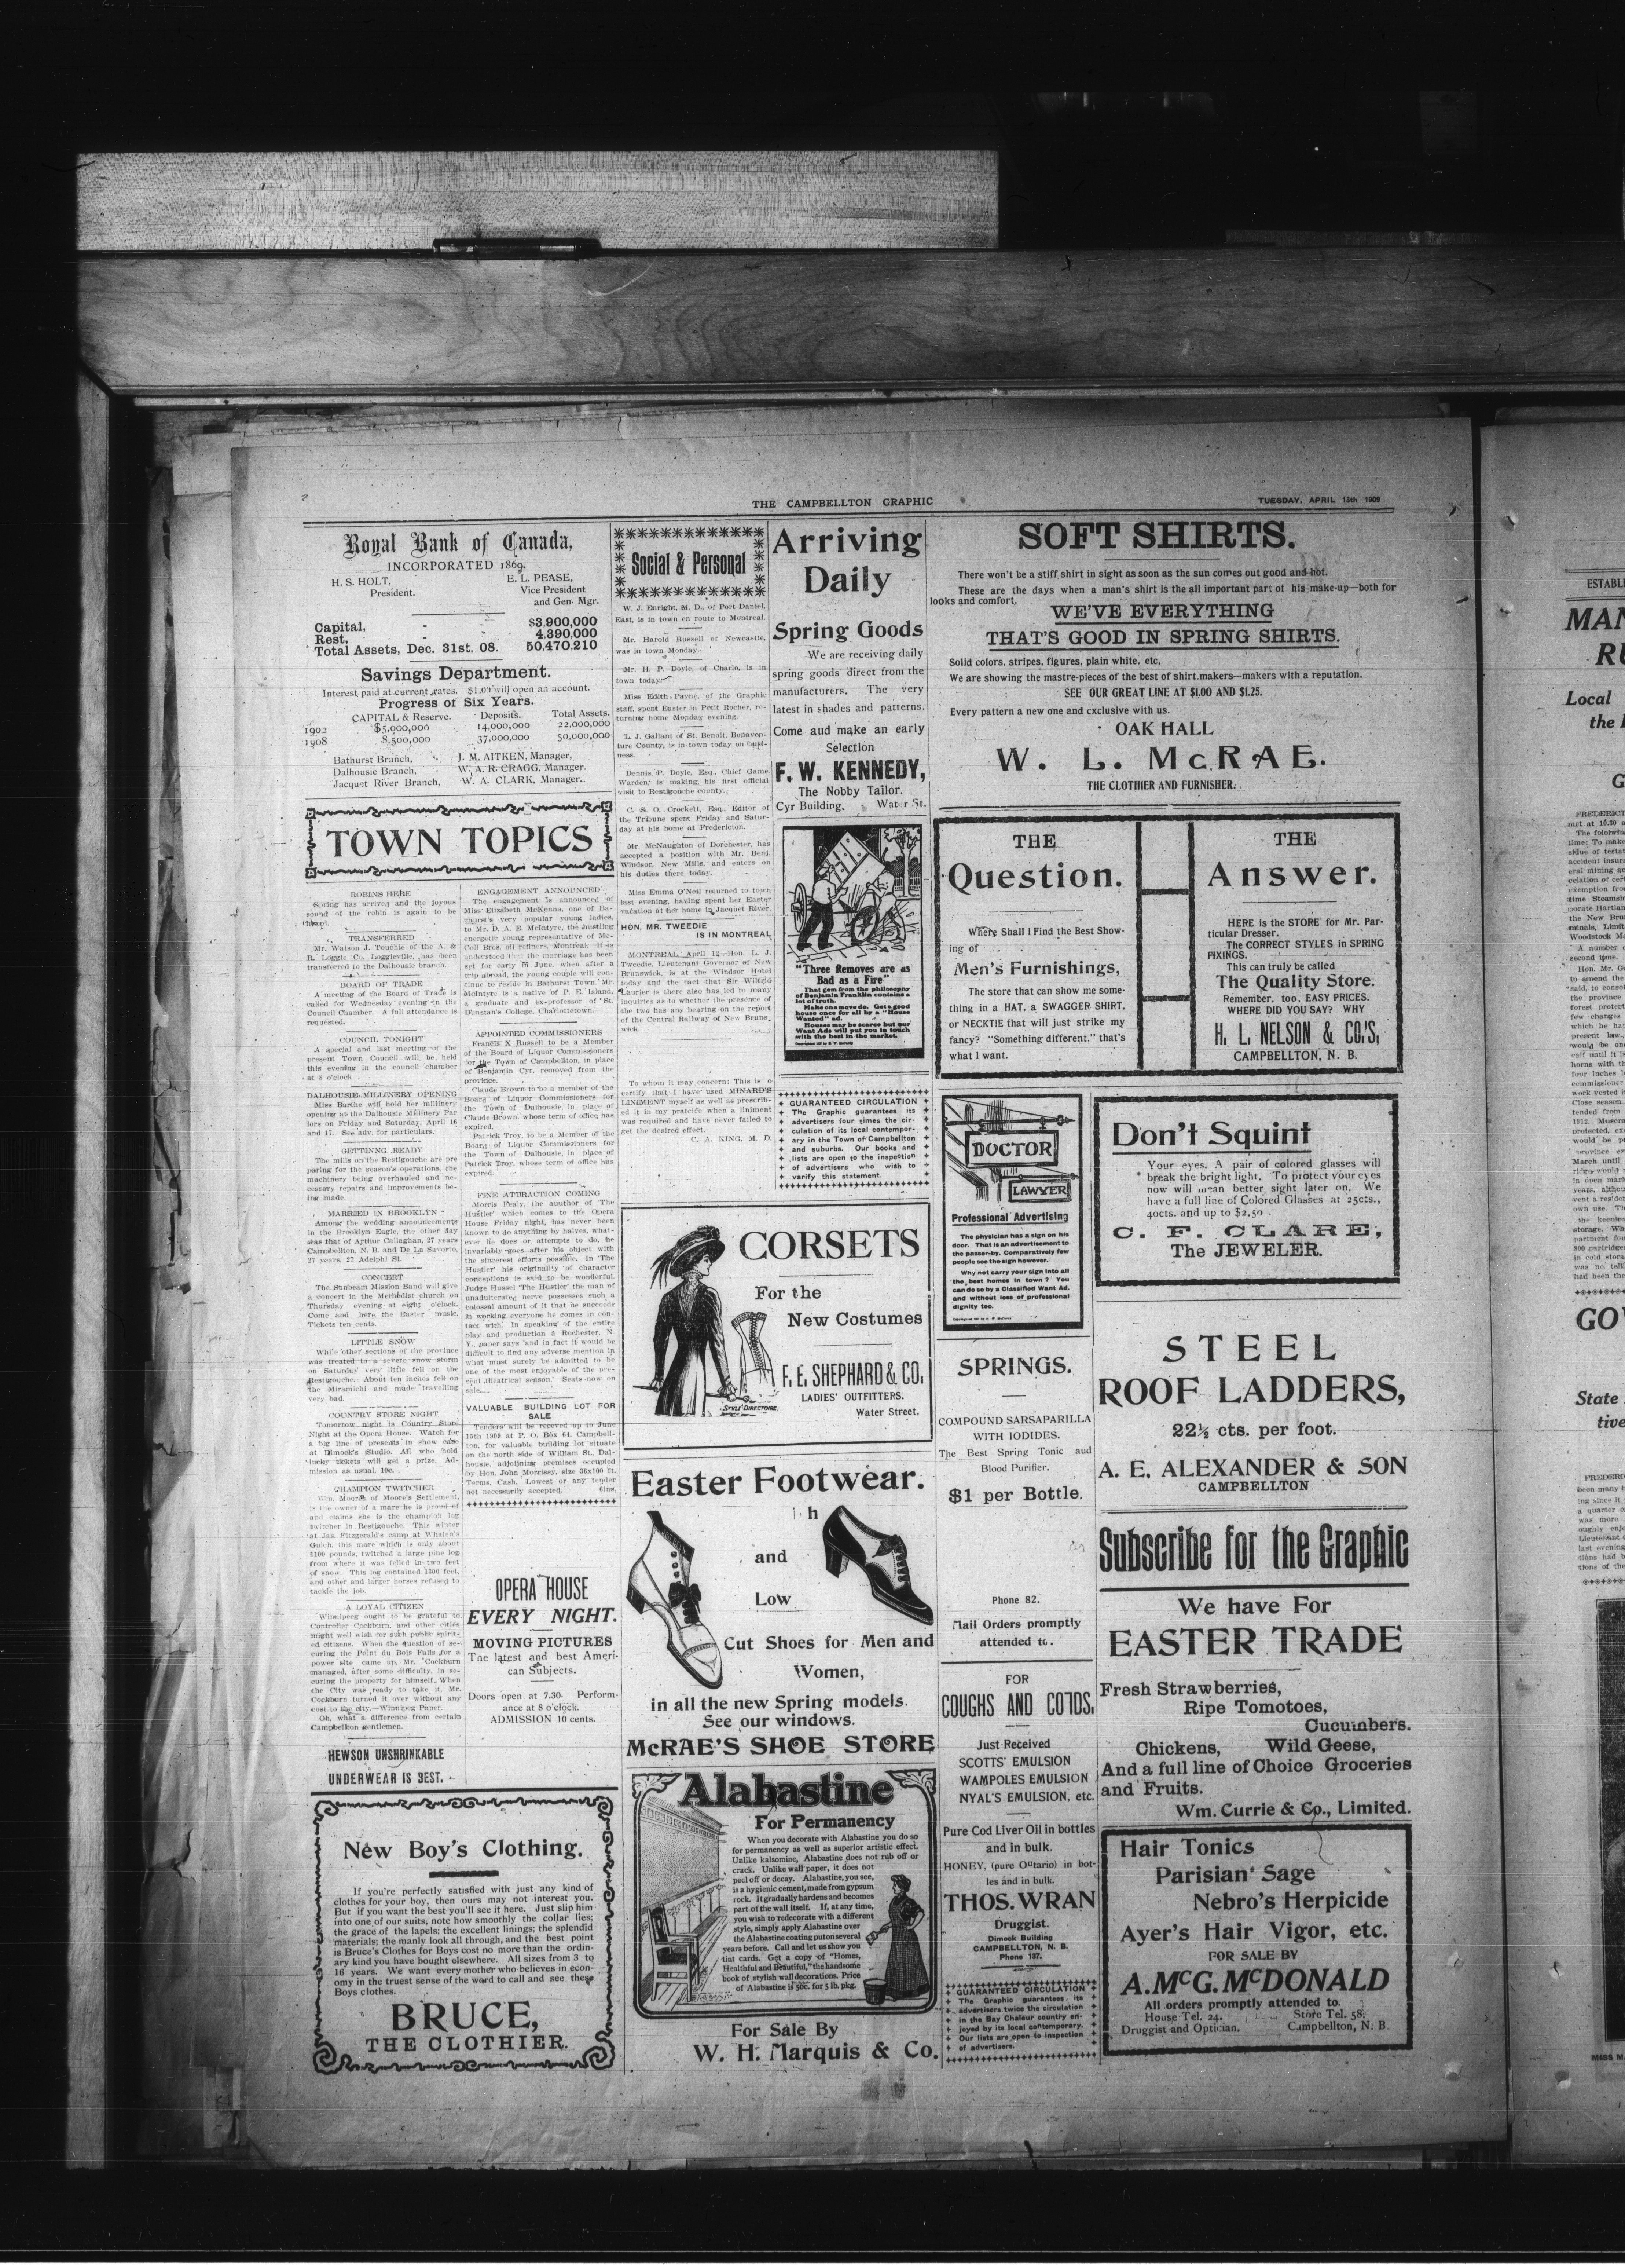 THE CAMPBELLTON GRAPHIC
TUESDAY, APRIL 13th 1909
Royal Bank of Canada,
INCORPORATED 1869.
H. S. HOLT,
President.
E. L. PEASE,
Vice President
and Gen. Mgr.
Capital, - - $3.900,000
Rest, - - 4.390,000
Total Assets, Dec. 31st. 08. 50.470.210
Savings Department.
Interest paid at current rates. $1.00 will open an account.
Progress of Six Years.
CAPITAL & Reserve. Deposits. Total Assets.
1902 $5,000,000 14,000,000 22,000,000
1908 8,500,000 37,000,000 50,000,000
Bathurst Branch, - J. M. AITKEN, Manager,
Dalhousie Branch, - W. A. R. CRAGG, Manager.
Jacquet River Branch, W. A. CLARK, Manager.
TOWN TOPICS
ROBINS HERE
Spring has arrived and the joyous
sound of the robin is again to be
heard.
TRANSFERRED
Mr. Watson J. Touchie of the A. &
R. Loggie Co. Loggieville, has been
transferred to the Dalhousie branch.
BOARD OF TRADE
A meeting of the Board of Trade is
called for Wednesday evening in the
Council Chamber. A full attendance is
requested.
COUNCIL TONIGHT
A special and last meeting of the
present Town Council will be held
this evening in the council chamber
at 8 o'clock.
DALHOUSIE MILLENERY OPENING
Miss Barthe will hold her millinery
opening at the Dalhousie Millinery Par
lors on Friday and Saturday, April 16
and 17. See adv. for particulars.
GETTINNG READY
The mills on the Restigouche are pre
paring for the season's operations, the
machinery being overhauled and ne-
cessary repairs and improvements be-
ing made.
MARRIED IN BROOKLYN
Among the wedding announcements
in the Brooklyn Eagle, the other day
was that of Arthur Callaghan, 27 years
Campbellton, N. B. and De La Savorto,
27 years, 27 Adelphi St.
CONCERT
The Sunbeam Mission Band will give
a concert in the Methodist church on
Thursday evening at eight o'clock.
Come and here the Easter music.
Tickets ten cents.
LITTLE SNOW
While other sections of the province
was treated to a severe snow storm
on Saturday very little fell on the
Restigouche. About ten inches fell on
the Miramichi and made travelling
very bad.
COUNTRY STORE NIGHT
Tomorrow night is Country Store
Night at the Opera House. Watch for
a big line of presents in show case
at Dimock's Studio. All who hold
lucky tickets will get a prize. Ad-
mission as usual, 10c.
CHAMPION TWITCHER
Wm. Moores of Moore's Settlement,
is the owner of a mare he is proud of
and claims she is the champion log
twitcher in Restigouche. This winter
at Jas. Fitzgerald's camp at Whalen's
Gulch, this mare which is only about
1100 pounds, twitched a large pine log
from where it was felled in two feet
of snow. This log contained 1300 feet,
and other and larger horses refused to
tackle the job.
A LOYAL CITIZEN
Winnipeg ought to be grateful to
Controller Cockburn, and other cities
might well wish for such public spirit-
ed citizens. When the question of se-
curing the Point du Bois Falls for a
power site came up, Mr. Cockburn
managed, after some difficulty, in se-
curing the property for himself. When
the City was ready to take it, Mr.
Cockburn turned it over without any
cost to the city.—Winnipeg Paper.
Oh, what a difference from certain
Campbellton gentlemen.
HEWSON UNSHRINKABLE
UNDERWEAR IS BEST.
New Boy's Clothing.
If you're perfectly satisfied with just any kind of
clothes for your boy, then ours may not interest you.
But if you want the best you'll see it here. Just slip him
into one of our suits, note how smoothly the collar lies;
the grace of the lapels; the excellent linings; the splendid
materials; the manly look all through, and the best point
is Bruce's Clothes for Boys cost no more than the ordin-
ary kind you have bought elsewhere. All sizes from 3 to
16 years. We want every mother who believes in econ-
omy in the truest sense of the word to call and see these
Boys clothes.
BRUCE,
THE CLOTHIER.
ENGAGEMENT ANNOUNCED
The engagement is announced of
Miss Elizabeth McKenna, one of Ba-
thurst's very popular young ladies,
to Mr. D. A. E. McIntyre, the hustling
energetic young representative of Mc-
Coll Bros. oil refiners, Montreal. It is
understood that the marriage has been
set for early in June, when after a
trip abroad, the young couple will con-
tinue to reside in Bathurst Town. Mr.
McIntyre is a native of P. E. Island,
a graduate and ex-professor of St.
Dunstan's College, Charlottetown.
APPOINTED COMMISSIONERS
Francis X Russell to be a Member
of the Board of Liquor Commissioners
for the Town of Campbellton, in place
of Benjamin Cyr, removed from the
province.
Claude Brown to be a member of the
Board of Liquor Commissioners for
the Town of Dalhousie, in place of
Claude Brown whose term of office has
expired.
Patrick Troy, to be a Member of the
Board of Liquor Commissioners for
the Town of Dalhousie, in place of
Patrick Troy, whose term of office has
expired.
FINE ATTRACTION COMING
Morris Fealy, the auuthor of 'The
Hustler' which comes to the Opera
House Friday night, has never been
known to do anything by halves, what-
ever he does or attempts to do, he
invariably goes after his object with
the sincerest efforts possible. In 'The
Hustler' his originality of character
conceptions is said to be wonderful.
Judge Hussel 'The Hustler' the man of
unadulterated nerve possesses such a
colossal amount of it that he succeeds
in working everyone he comes in con-
tact with. In speaking of the entire
play and production a Rochester, N.
Y., paper says 'and in fact it would be
difficult to find any adverse mention in
what must surely be admitted to be
one of the most enjoyable of the pre-
sent theatrical season.' Seats now on
sale.
VALUABLE BUILDING LOT FOR
SALE
Tenders will be receved up to June
15th 1909 at P. O. Box 64, Campbell-
ton, for valuable building lot situate
on the north side of William St., Dal-
housie, adjoining premises occupied
by Hon. John Morrissy, size 36x100 ft.
Terms, Cash. Lowest or any tender
not necessarily accepted. 6ins.
OPERA HOUSE
EVERY NIGHT.
MOVING PICTURES
The latest and best Ameri-
can Subjects.
Doors open at 7.30. Perform-
ance at 8 o'clock.
ADMISSION 10 cents.
Social & Personal
W. J. Enright, M. D., of Port Daniel,
East, is in town en route to Montreal.
Mr. Harold Russell of Newcastle,
was in town Monday.
Mr. H. P. Doyle, of Charlo, is in
town today.
Miss Edith Payne, of the Graphic
staff, spent Easter in Petit Rocher, re-
turning home Monday evening.
L. J. Gallant of St. Benoit, Bonaven-
ture County, is in town today on busi-
ness.
Dennis P. Doyle, Esq., Chief Game
Warden, is making his first official
visit to Restigouche county.
C. S. O. Crockett, Esq., Editor of
the Tribune spent Friday and Satur-
day at his home at Fredericton.
Mr. McNaughton of Dorchester, has
accepted a position with Mr. Benj.
Windsor, New Mills, and enters on
his duties there today.
Miss Emma O'Neil returned to town
last evening, having spent her Easter
vacation at her home in Jacquet River.
HON. MR. TWEEDIE
IS IN MONTREAL
MONTREAL, April 12—Hon. L. J.
Tweedie, Lieutenant Governor of New
Brunswick, is at the Windsor Hotel
today and the fact that Sir Wilfrid
Laurier is there also has led to many
inquiries as to whether the presence of
the two has any bearing on the report
of the Central Railway of New Bruns
wick.
To whom it may concern: This is o
certify that I have used MINARD'S
LINIMENT myself as well as prescrib-
ed it in my pratcide when a liniment
was required and have never failed to
get the desired effect.
C. A. KING, M. D.
Arriving
Daily
Spring Goods
We are receiving daily
spring goods direct from the
manufacturers. The very
latest in shades and patterns.
Come aud make an early
Selection
F. W. KENNEDY,
The Nobby Tailor.
Cyr Building, Water St.
"Three Removes are as
Bad as a Fire"
That gem from the philosophy
of Benjamin Franklin contains a
lot of truth.
Make one move do. Get a good
house once for all by a "House
Wanted" ad.
Houses may be scarce but our
Want Ads will put you in touch
with the best in the market.
GUARANTEED CIRCULATION
The Graphic guarantees its
advertisers four times the cir-
culation of its local contempor-
ary in the Town of Campbellton
and suburbs. Our books and
lists are open to the inspection
of advertisers who wish to
varify this statement.
CORSETS
For the
New Costumes
F. E. SHEPHARD & CO,
LADIES' OUTFITTERS.
Water Street.
STYLE DIRECTOIRE
Easter Footwear.
and
Low
Cut Shoes for Men and
Women,
in all the new Spring models.
See our windows.
McRAE'S SHOE STORE
Alabastine
For Permanency
When you decorate with Alabastine you do so
for permanency as well as superior artistic effect.
Unlike kalsomine, Alabastine does not rub off or
crack. Unlike wall paper, it does not
peel off or decay. Alabastine, you see,
is a hygienic cement, made from gypsum
rock. It gradually hardens and becomes
part of the wall itself. If, at any time,
you wish to redecorate with a different
style, simply apply Alabastine over
the Alabastine coating put on several
years before. Call and let us show you
tint cards. Get a copy of "Homes,
Healthful and Beautiful," the handsome
book of stylish wall decorations. Price
of Alabastine is 50c. for 5 lb. pkg.
For Sale By
W. H. Marquis & Co.
SOFT SHIRTS.
There won't be a stiff shirt in sight as soon as the sun comes out good and hot.
These are the days when a man's shirt is the all important part of his make-up—both for
looks and comfort.
WE'VE EVERYTHING
THAT'S GOOD IN SPRING SHIRTS.
Solid colors, stripes, figures, plain white, etc,
We are showing the mastre-pieces of the best of shirt makers—makers with a reputation.
SEE OUR GREAT LINE AT $1.00 AND $1.25.
Every pattern a new one and cxclusive with us.
OAK HALL
W. L. McRAE.
THE CLOTHIER AND FURNISHER.
THE
Question.
Where Shall I Find the Best Show-
ing of
Men's Furnishings,
The store that can show me some-
thing in a HAT, a SWAGGER SHIRT,
or NECKTIE that will just strike my
fancy? "Something different," that's
what I want.
THE
Answer.
HERE is the STORE for Mr. Par-
ticular Dresser.
The CORRECT STYLES in SPRING
FIXINGS.
This can truly be called
The Quality Store.
Remember, too, EASY PRICES.
WHERE DID YOU SAY? WHY
H. L. NELSON & CO.'S,
CAMPBELLTON, N. B.
DOCTOR
LAWYER
Professional Advertising
The physician has a sign on his
door. That is an advertisement to
the passer-by. Comparatively few
people see the sign however.
Why not carry your sign into all
the best homes in town? You
can do so by a Classified Want Ad.
and without loss of professional
dignity too.
Don't Squint
Your eyes. A pair of colored glasses will
break the bright light. To protect your eyes
now will mean better sight later on. We
have a full line of Colored Glasses at 25cts.,
40cts. and up to $2.50.
C. F. CLARE,
The JEWELER.
SPRINGS.
COMPOUND SARSAPARILLA
WITH IODIDES.
The Best Spring Tonic aud
Blood Purifier.
$1 per Bottle.
Phone 82.
Mail Orders promptly
attended to.
FOR
COUGHS AND COLDS,
Just Received
SCOTTS' EMULSION
WAMPOLES EMULSION
NYAL'S EMULSION, etc.
Pure Cod Liver Oil in bottles
and in bulk.
HONEY, (pure Ontario) in bot-
tles and in bulk.
THOS. WRAN
Druggist.
Dimock Building
CAMPBELLTON, N. B.
Phone 137.
GUARANTEED CIRCULATION
The Graphic guarantees its
advertisers twice the circulation
in the Bay Chaleur country en-
joyed by its local contemporary.
Our lists are open to inspection
of advertisers.
STEEL
ROOF LADDERS,
22½ cts. per foot.
A. E. ALEXANDER & SON
CAMPBELLTON
Subscribe for the Graphic
We have For
EASTER TRADE
Fresh Strawberries,
Ripe Tomotoes,
Cucumbers.
Chickens, Wild Geese,
And a full line of Choice Groceries
and Fruits.
Wm. Currie & Co., Limited.
Hair Tonics
Parisian Sage
Nebro's Herpicide
Ayer's Hair Vigor, etc.
FOR SALE BY
A. McG. McDONALD
All orders promptly attended to.
House Tel. 24. Store Tel. 58.
Druggist and Optician. Campbellton, N. B.